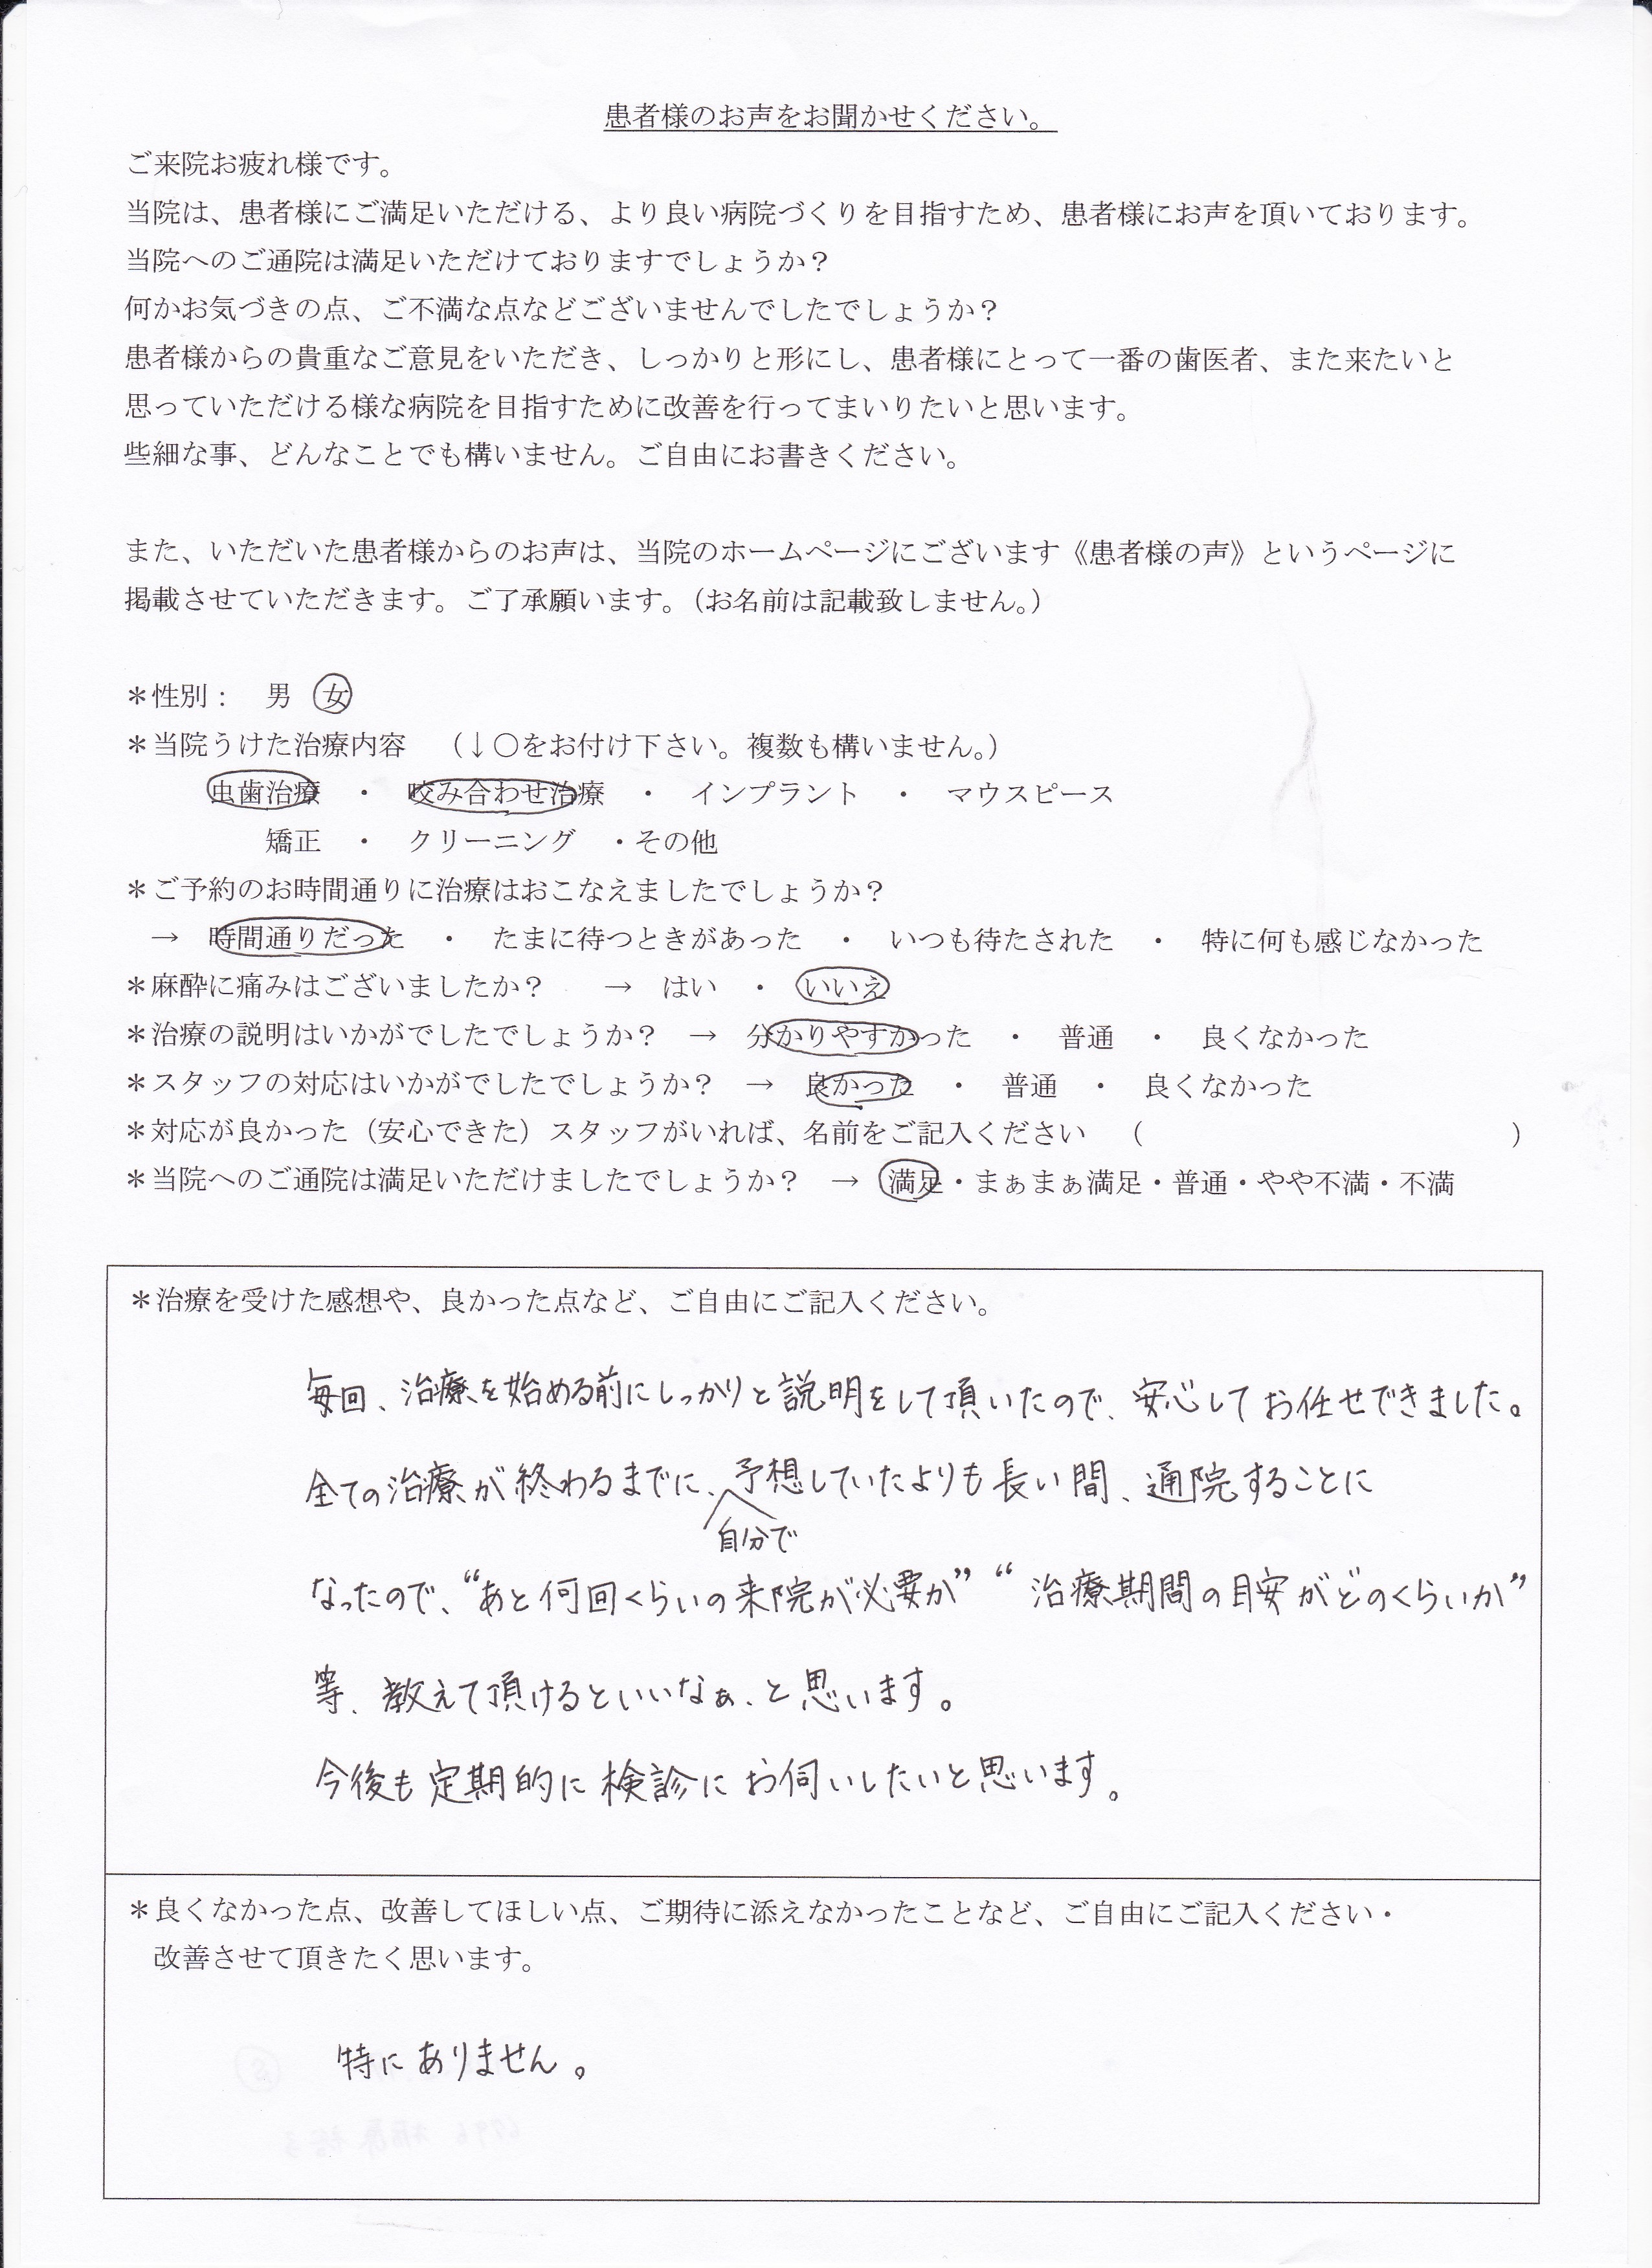 患者様のお声をお聞かせください。
ご来院お疲れ様です。
当院は、患者様にご満足いただける、より良い病院づくりを目指すため、患者様にお声を頂いております。
当院へのご通院は満足いただけておりますでしょうか？
何かお気づきの点、ご不満な点などございませんでしたでしょうか？
患者様からの貴重なご意見をいただき、しっかりと形にし、患者様にとって一番の歯医者、また来たいと
思っていただける様な病院を目指すために改善を行ってまいりたいと思います。
些細な事、どんなことでも構いません。ご自由にお書きください。
また、いただいた患者様からのお声は、当院のホームページにございます《患者様の声》というページに
掲載させていただきます。ご了承願います。（お名前は記載致しません。）
＊性別：　男　女
＊当院うけた治療内容　（↓○をお付け下さい。複数も構いません。）
虫歯治療　・　咬み合わせ治療　・　インプラント　・　マウスピース
矯正　・　クリーニング　・その他
＊ご予約のお時間通りに治療はおこなえましたでしょうか？
→　時間通りだった　・　たまに待つときがあった　・　いつも待たされた　・　特に何も感じなかった
＊麻酔に痛みはございましたか？　→　はい　・　いいえ
＊治療の説明はいかがでしたでしょうか？　→　分かりやすかった　・　普通　・　良くなかった
＊スタッフの対応はいかがでしたでしょうか？　→　良かった　・　普通　・　良くなかった
＊対応が良かった（安心できた）スタッフがいれば、名前をご記入ください　（　　　　）
＊当院へのご通院は満足いただけましたでしょうか？　→　満足・まぁまぁ満足・普通・やや不満・不満
＊治療を受けた感想や、良かった点など、ご自由にご記入ください。
毎回、治療を始める前にしっかりと説明をして頂いたので、安心してお任せできました。
全ての治療が終わるまでに、予想していたよりも長い間、通院することに
自分で
なったので、“あと何回くらいの来院が必要か”“治療期間の目安がどのくらいか”
等、教えて頂けるといいなぁ、と思います。
今後も定期的に検診にお伺いしたいと思います。
＊良くなかった点、改善してほしい点、ご期待に添えなかったことなど、ご自由にご記入ください・
改善させて頂きたく思います。
特にありません。